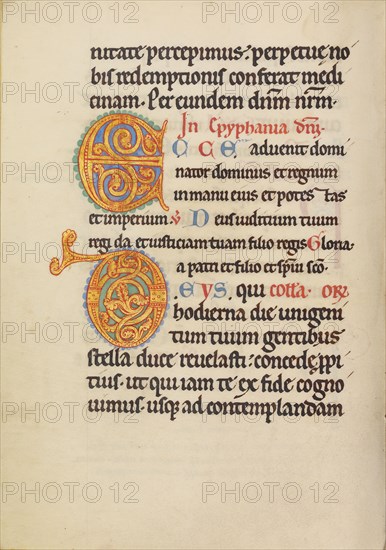 nitate percepimus. perpetue no
bis redemptionis conferat medi
cinam. Per eundem dnm nrm.
In epyphania dni.
E C C E. advenit domi
nator dominus et regnum
in manu eius et potes tas
et imperium. D eus iudicium tuum
regi da. et iusticiam tuam filio regis Gloria
a patri et filio et spiui sco.
D E Y S. qui colla. or
hodierna die unigeni
tum tuum gentibus
stella duce revelasti. concede ppi
tius. ut qui iam te ex fide cogno
vimus. usque ad contemplandam
PHOTO 12